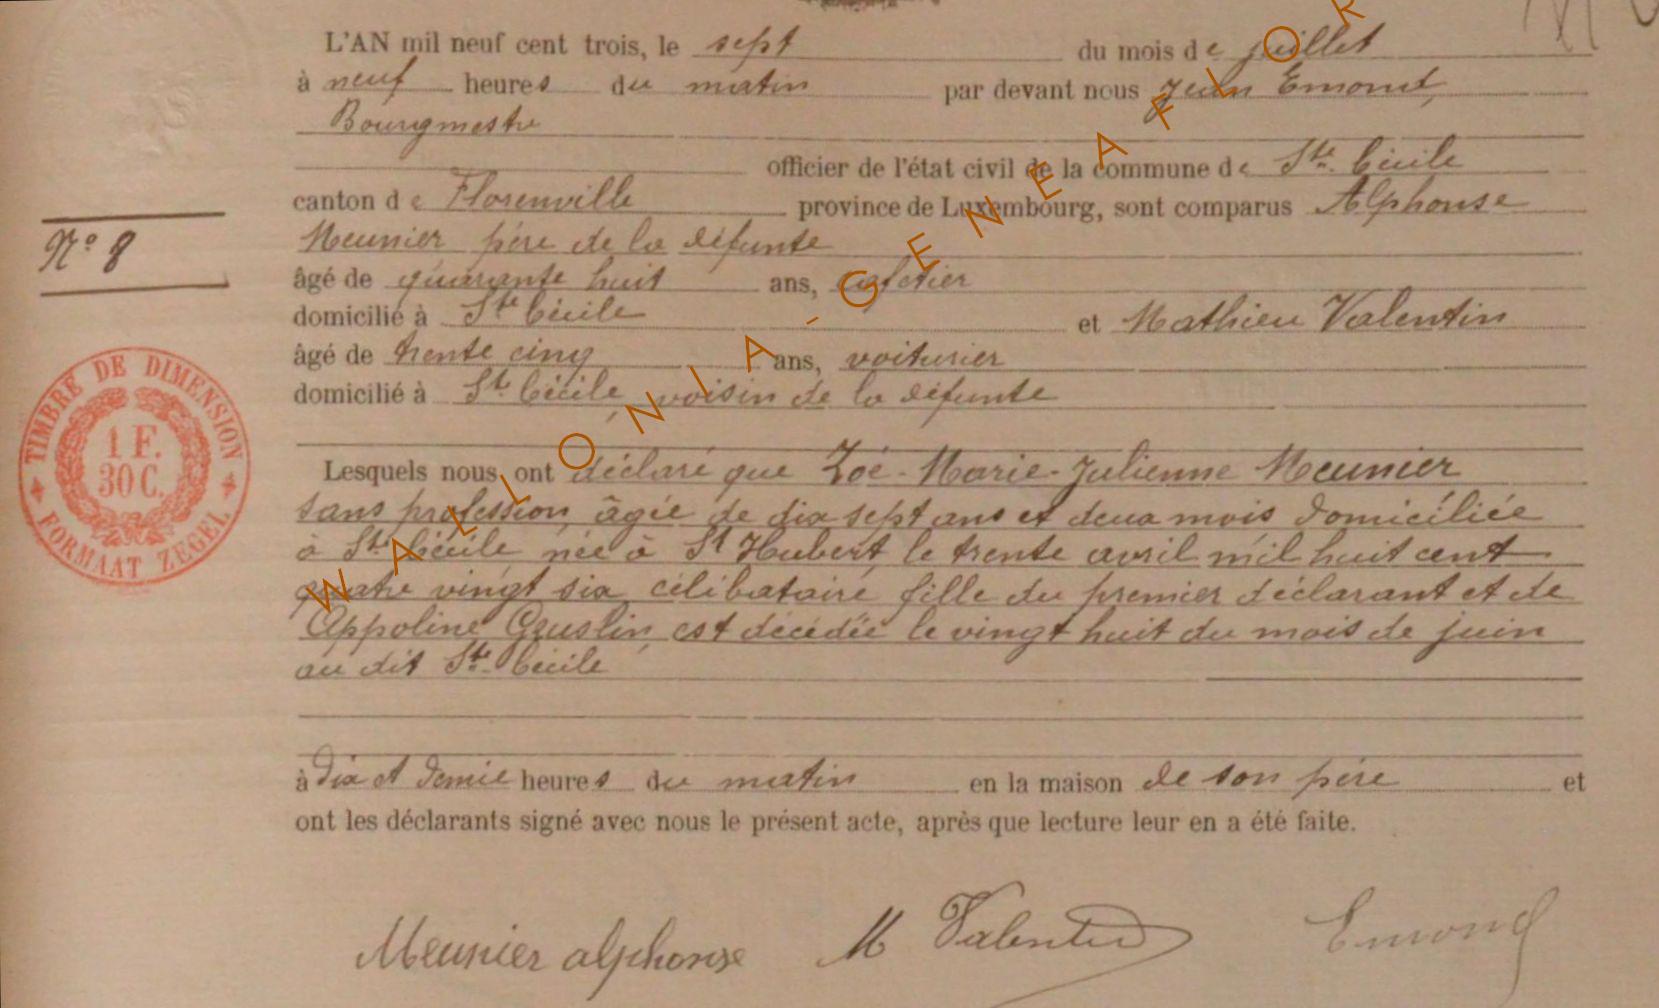 L'AN mil neuf cent trois, le sept du mois de juillet
à neuf heures du matin par devant nous Jean Emond,
Bourgmestre
officier de l'état civil de la commune de Ste. Cécile
canton de Florenville province de Luxembourg, sont comparus Alphonse
Meunier père de la défunte
No 8
âgé de quarante huit ans, cafetier
domicilié à Ste Cécile et Mathieu Valentin
âgé de trente cinq ans, voiturier
domicilié à Ste Cécile, voisin de la défunte
TIMBRE DE DIMENSION
1 F.
30 C.
FORMAAT ZEGEL
Lesquels nous ont déclaré que Zoé-Marie-Julienne Meunier
sans profession, âgée de dix sept ans et deux mois domiciliée
à Ste Cécile née à St Hubert, le trente avril mil huit cent
quatre vingt six célibataire fille du premier déclarant et de
Appoline Guslin, est décédée le vingt huit du mois de juin
au dit Ste. Cécile
à dix et demie heures du matin en la maison de son père et
ont les déclarants signé avec nous le présent acte, après que lecture leur en a été faite.
Meunier alphonse M Valentin Emond
WALLONIA-GENEAFLOR